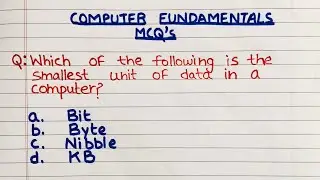 COMPUTER FUNDAMENTALS
MCQ's
Q: Which of the following is the
smallest unit of data in a
computer?
a. Bit
b. Byte
c. Nibble
d. KB